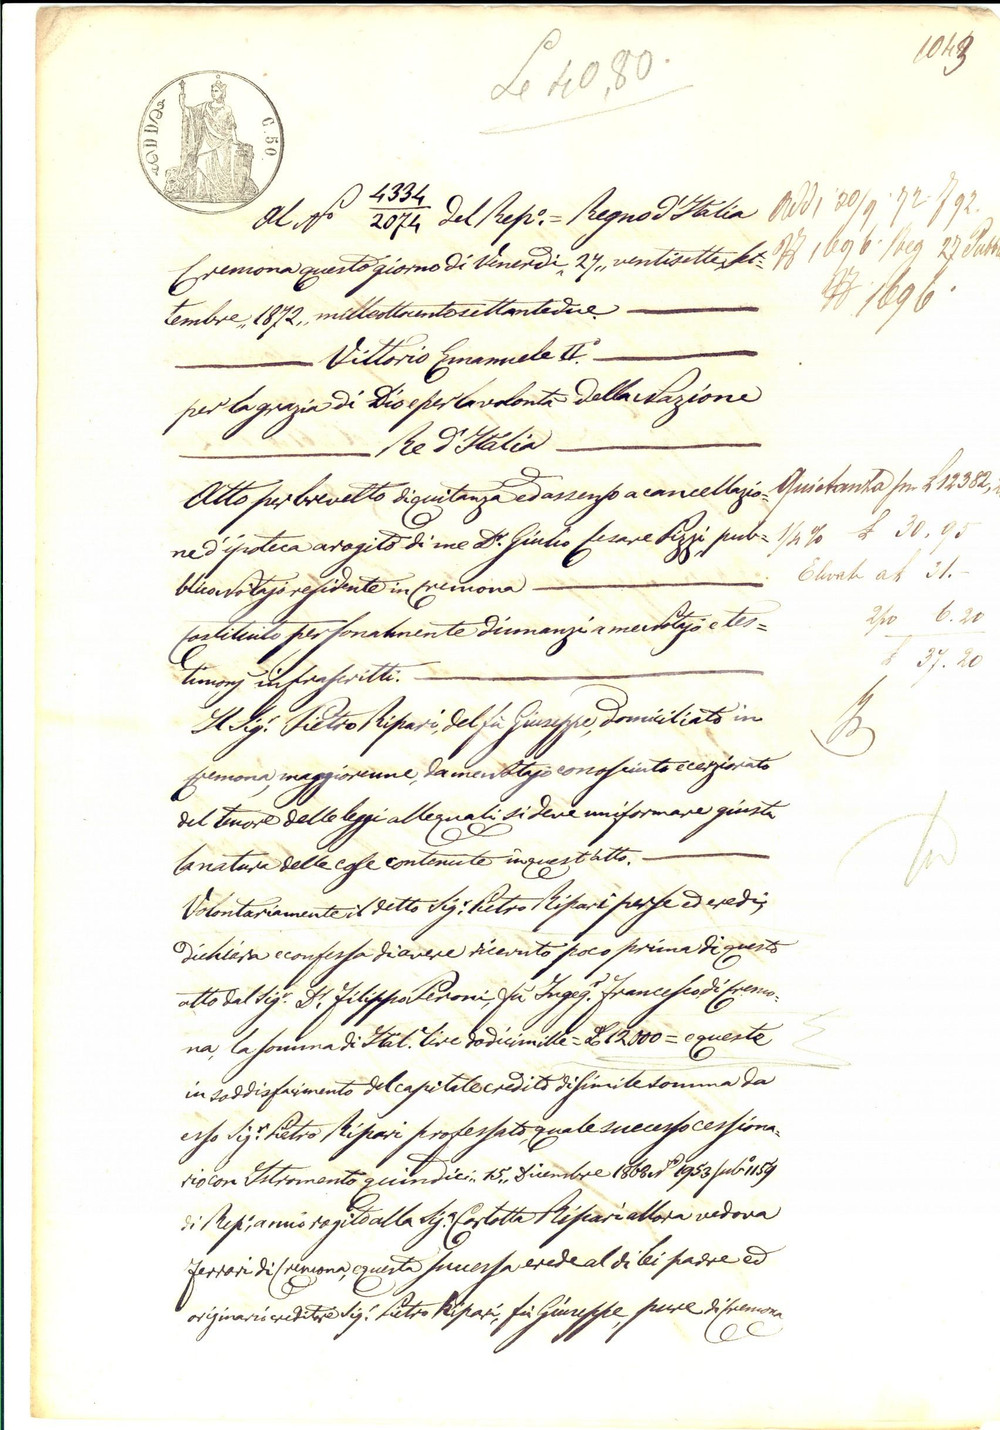 1043
Le 40,80.
C. 50
Al N.º 4334/2074 del Rep.º = Regno d'Italia
Cremona questo giorno di Venerdì „27„ ventisette Set=
tembre „1872„ milleottocentosettantadue.
Vittorio Emanuele II.º
per la grazia di Dio e per la volontà della Nazione
Re d'Italia
Atto per brevetto di quitanza ed assenso a cancellazio=
ne d'ipoteca a rogito di me D.r Giulio Cesare Pizzi, pub=
blico Notajo residente in Cremona
Costituito personalmente dinnanzi a me Notajo e tes=
timonj infrascritti.
Il Sig.r Pietro Ripari, del fù Giuseppe, domiciliato in
Cremona, maggiorenne, da me Notajo conosciuto e cerziorato
del tenore delle leggi alle quali si deve uniformare giusta
la natura delle cose contenute in quest'atto.
Volontariamente il detto Sig.r Pietro Ripari per se ed eredi,
dichiara e confessa di avere ricevuto poco prima di questo
atto dal Sig.r D.r Filippo Peroni, fù Ingeg.r Francesco, di Cremo=
na, la somma di Ital.e lire dodicimille = £ 12000 = e queste
in soddisfacimento del capitale credito di simile somma da
esso Sig.r Pietro Ripari professato, quale successo cessiona=
rio con Istromento quindici „15„ Dicembre 1868 N.º 1953 sub.º 1159
di Rep.º a mio rogito alla Sig.ra Carlotta Ripari allora vedova
Ferrari di Cremona, e questa successa erede al di lei padre ed
originario creditore Sig.r Pietro Ripari, fù Giuseppe, pure di Cremona
30/9 72
1696 Reg 27 Pubb
1696.
Quietanza su £ 12382,
1/4 % £ 30.95
Elevate a £ 31.-
2/10 6.20
£ 37.20